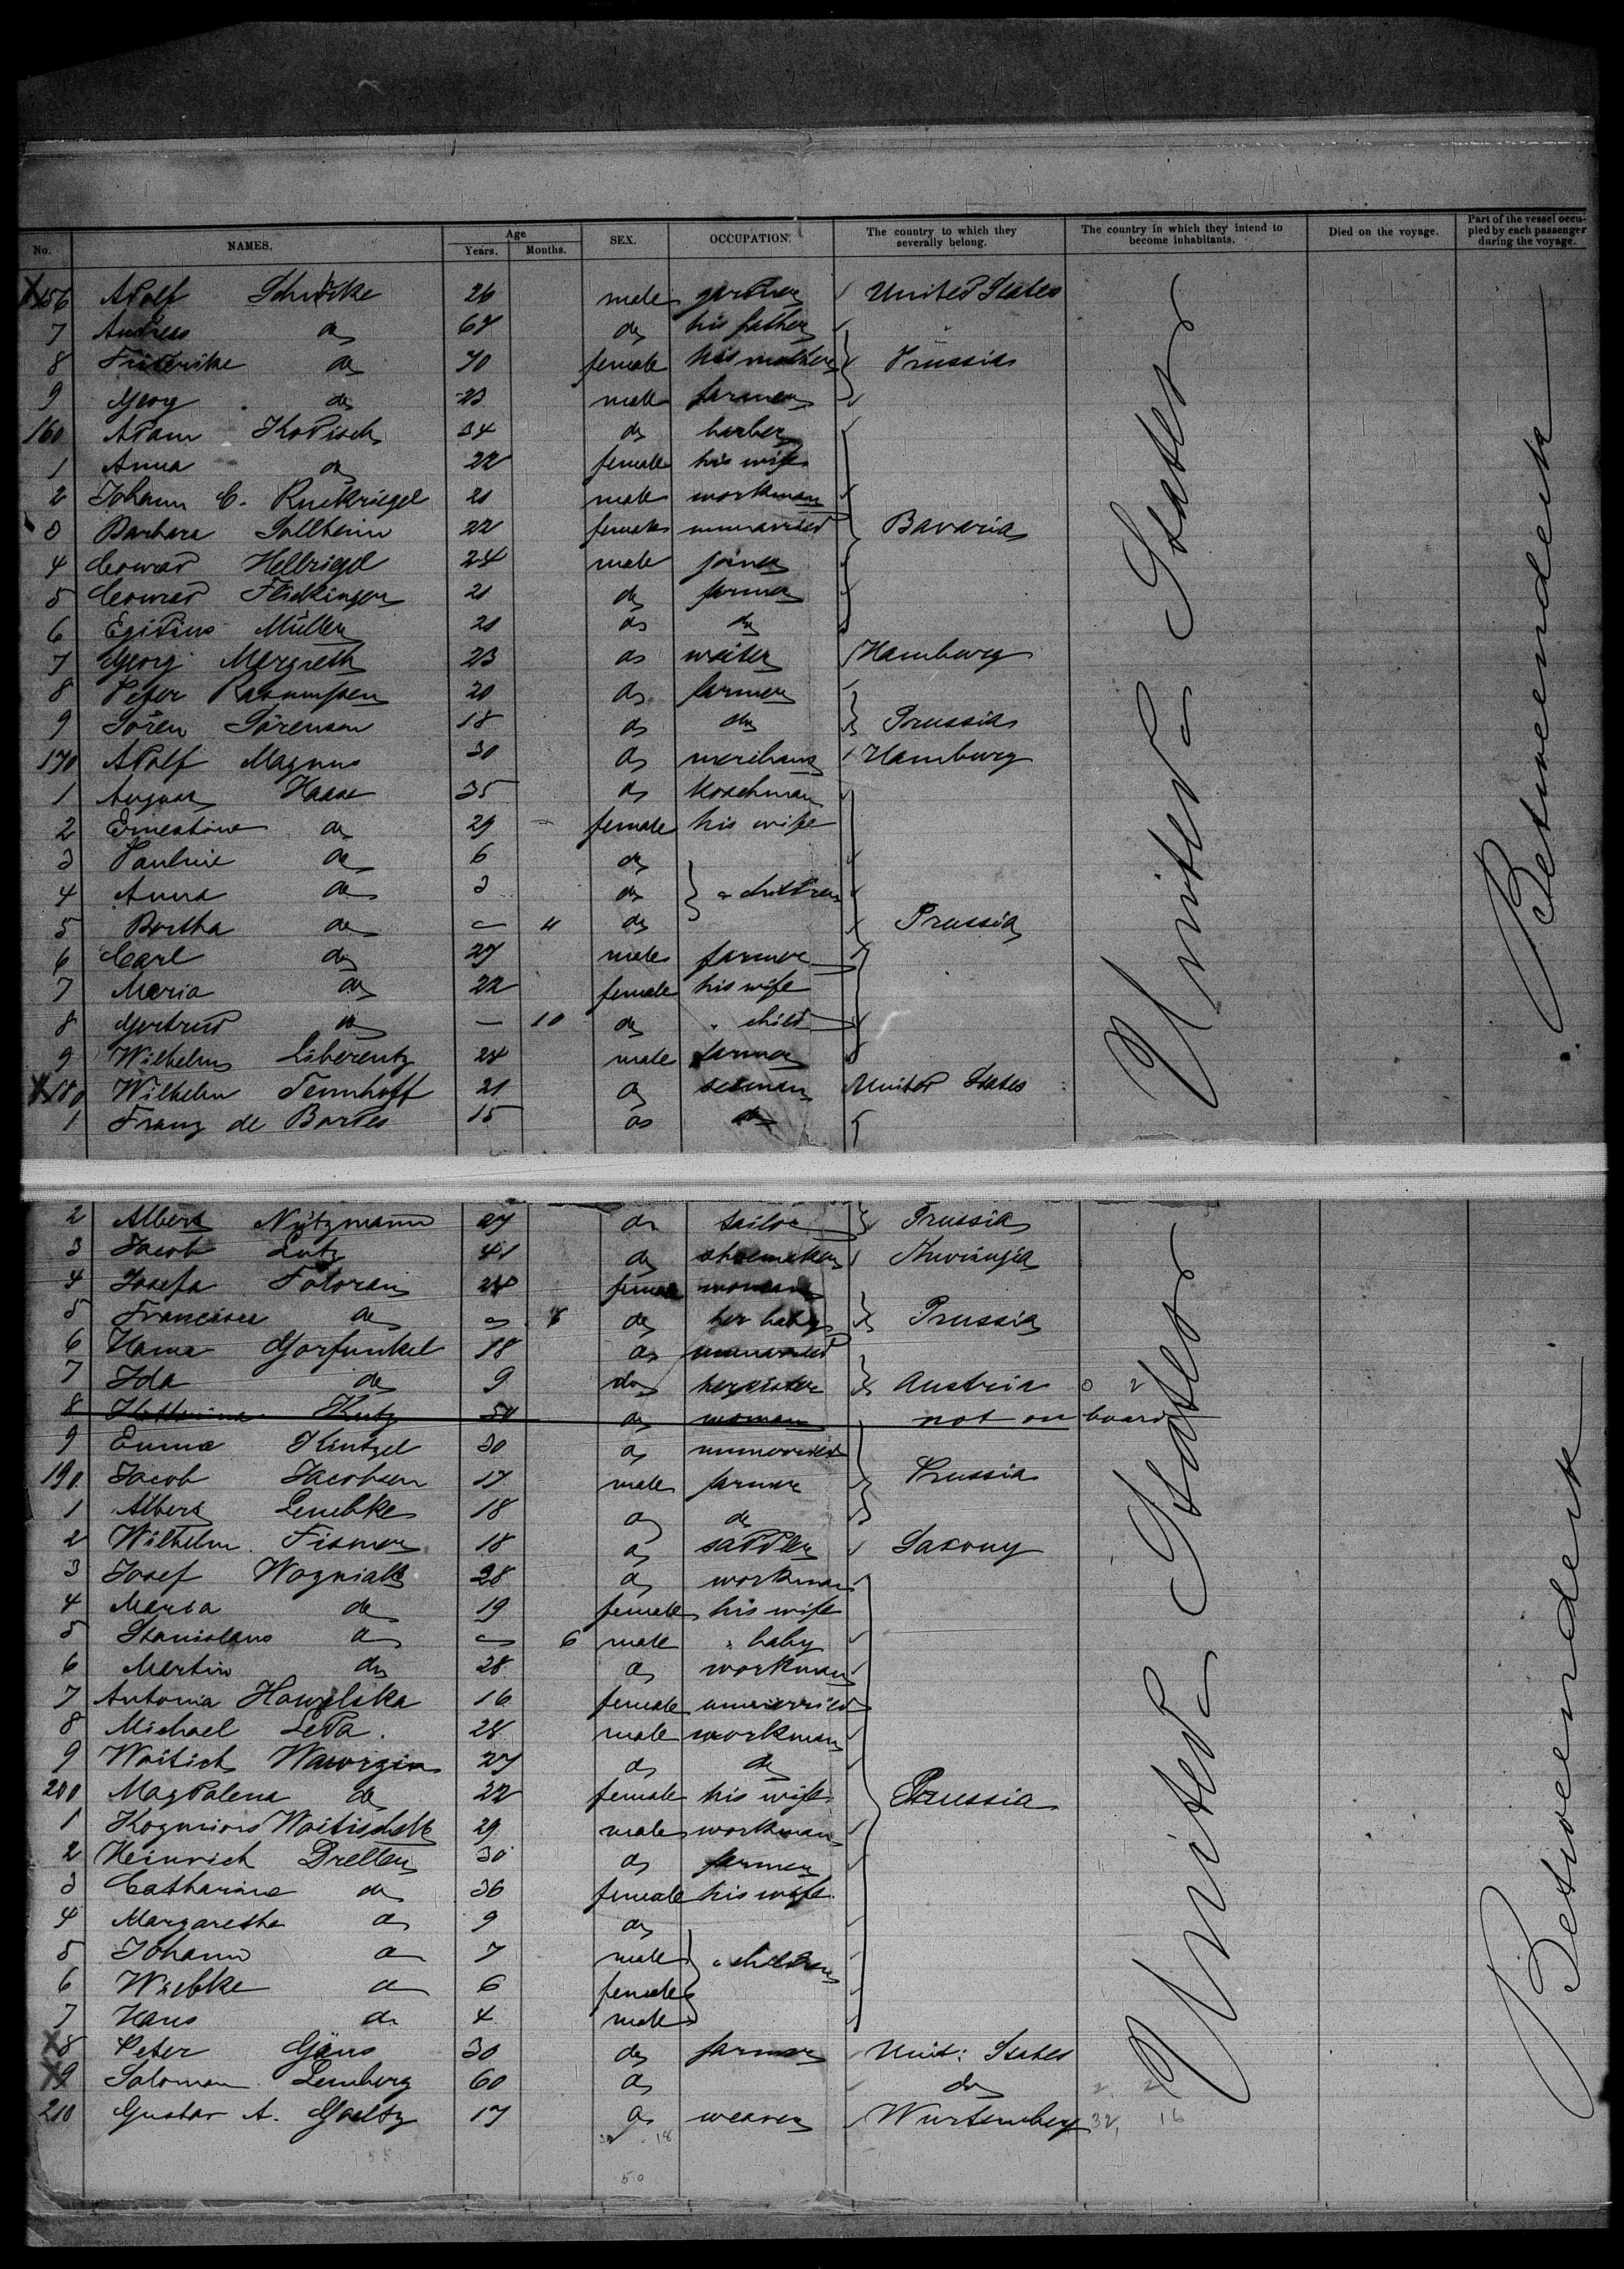 No. NAMES. Age Years. Months. SEX. OCCUPATION. The country to which they severally belong. The country in which they intend to become inhabitants. Died on the voyage. Part of the vessel occupied by each passenger during the voyage.
X 156 Adolf 26 male gardner United States
7 Andreas do 67 do his father
8 Friderike do 70 female his mother Prussia
9 Georg do 23 male farmer
160 Adam Kodisch 34 do barber
1 Anna do 22 female his wife
2 Johann C. Ruckriegel 21 male workman
3 Barbara Sollheim 22 female unmarried Bavaria
4 Conrad Hellriegel 24 male joiner
5 Conrad Flickinger 21 do farmer
6 Egidius Müller 21 do do
7 Georg Mergreth 23 do waiter Hamburg
8 Peter Rasmussen 20 do farmer
9 Sören Sörensen 18 do do Prussia
170 Adolf Magnus 30 do merchant Hamburg
1 August Haase 35 do koschman
2 Ernestine do 29 female his wife
3 Pauline do 6 do
4 Anna do 3 do " children
5 Bertha do — 11 do Prussia
6 Carl do 27 male farmer
7 Maria do 22 female his wife
8 Gertrud do — 10 do " child
9 Wilhelm Liberentz 24 male farmer
X 180 Wilhelm Tennhoff 21 do seaman United States
1 Franz de Bardes 15 do do
United States
Betweendeck
2 Albert Nützmann 27 do tailor Prussia
3 Jacob Lutz 41 do shoemaker Thuringia
4 Josefa Fotoran 24 female woman
5 Francisca do — 8 do her baby Prussia
6 Hanna Gorfunkel 18 do unmarried
7 Ida do 9 do her sister Austria 0 2
8 Katharina Kutz 50 do woman not on board
9 Emma Kintzel 30 do unmarried
190 Jacob Jacobsen 17 male farmer Prussia
1 Albert Lembke 18 do do
2 Wilhelm Fismer 18 do saddler Saxony
3 Josef Wozniak 28 do workman
4 Maria do 19 female his wife
5 Stanislaus do — 6 male " baby
6 Martin do 28 do workman
7 Antonia Howelska 16 female unmarried
8 Michael Leda 28 male workman
9 Woitich Wawrzin 27 do do
200 Magdalena do 32 female his wife Prussia
1 Woitischek 29 male workman
2 Heinrich Drellen 30 do farmer
3 Catharine do 36 female his wife
4 Margarethe do 9 do
5 Johann do 7 male " children
6 Wiebke do 6 female
7 Hans do 4 male
X 8 Peter Gäns 30 do farmer Unit: States
X 9 Soloman Lemberg 60 do do 2 2
210 Gustav A. Goeltz 17 do weaver Wurtemberg 32, 16
32 18
55
50
United States
Betweendeck